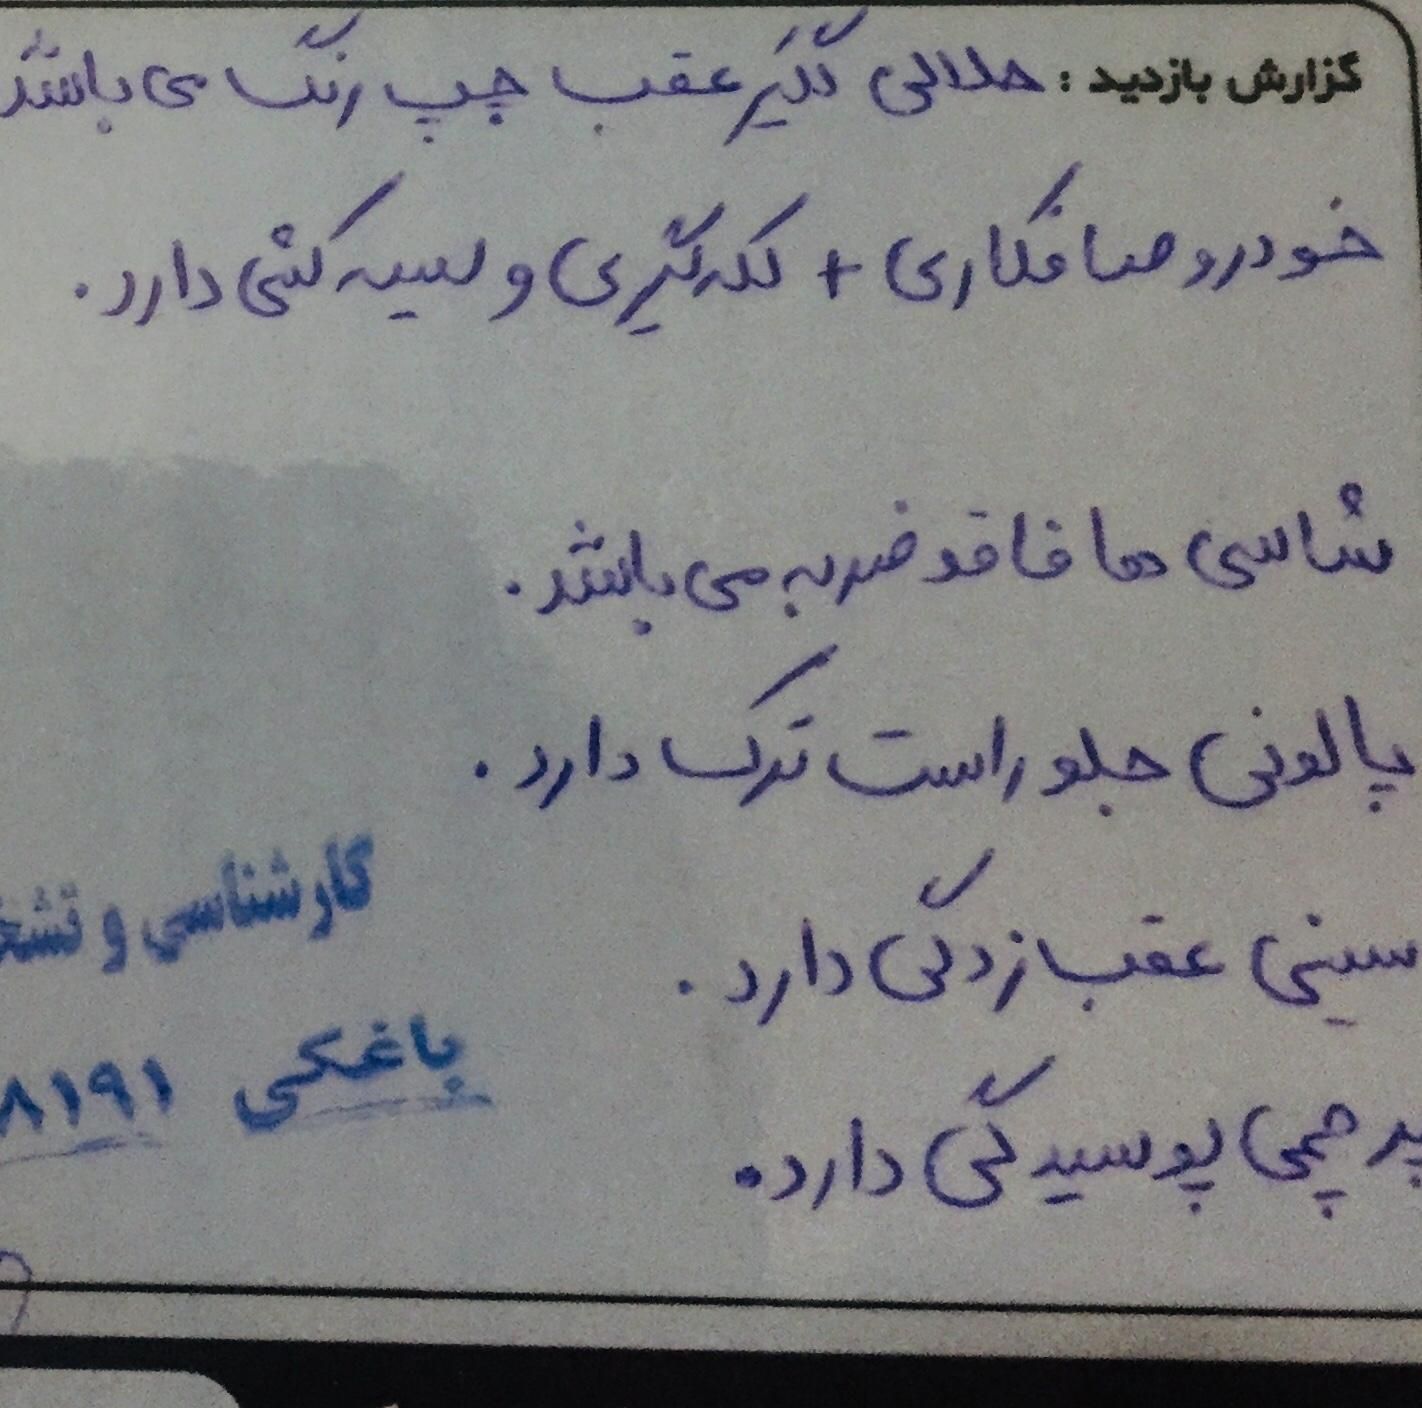 گزارش بازدید : هلالی گلگیر عقب چپ رنگ می باشد
خودرو صافکاری + لکه گیری و لیسه کشی دارد.
شاسی ها فاقد ضربه می باشد.
پالونی جلو راست ترک دارد.
سینی عقب زدگی دارد.
پرچمی پوسیدگی دارد.
کارشناسی و تشخ
باغکی ۸۱۹۱